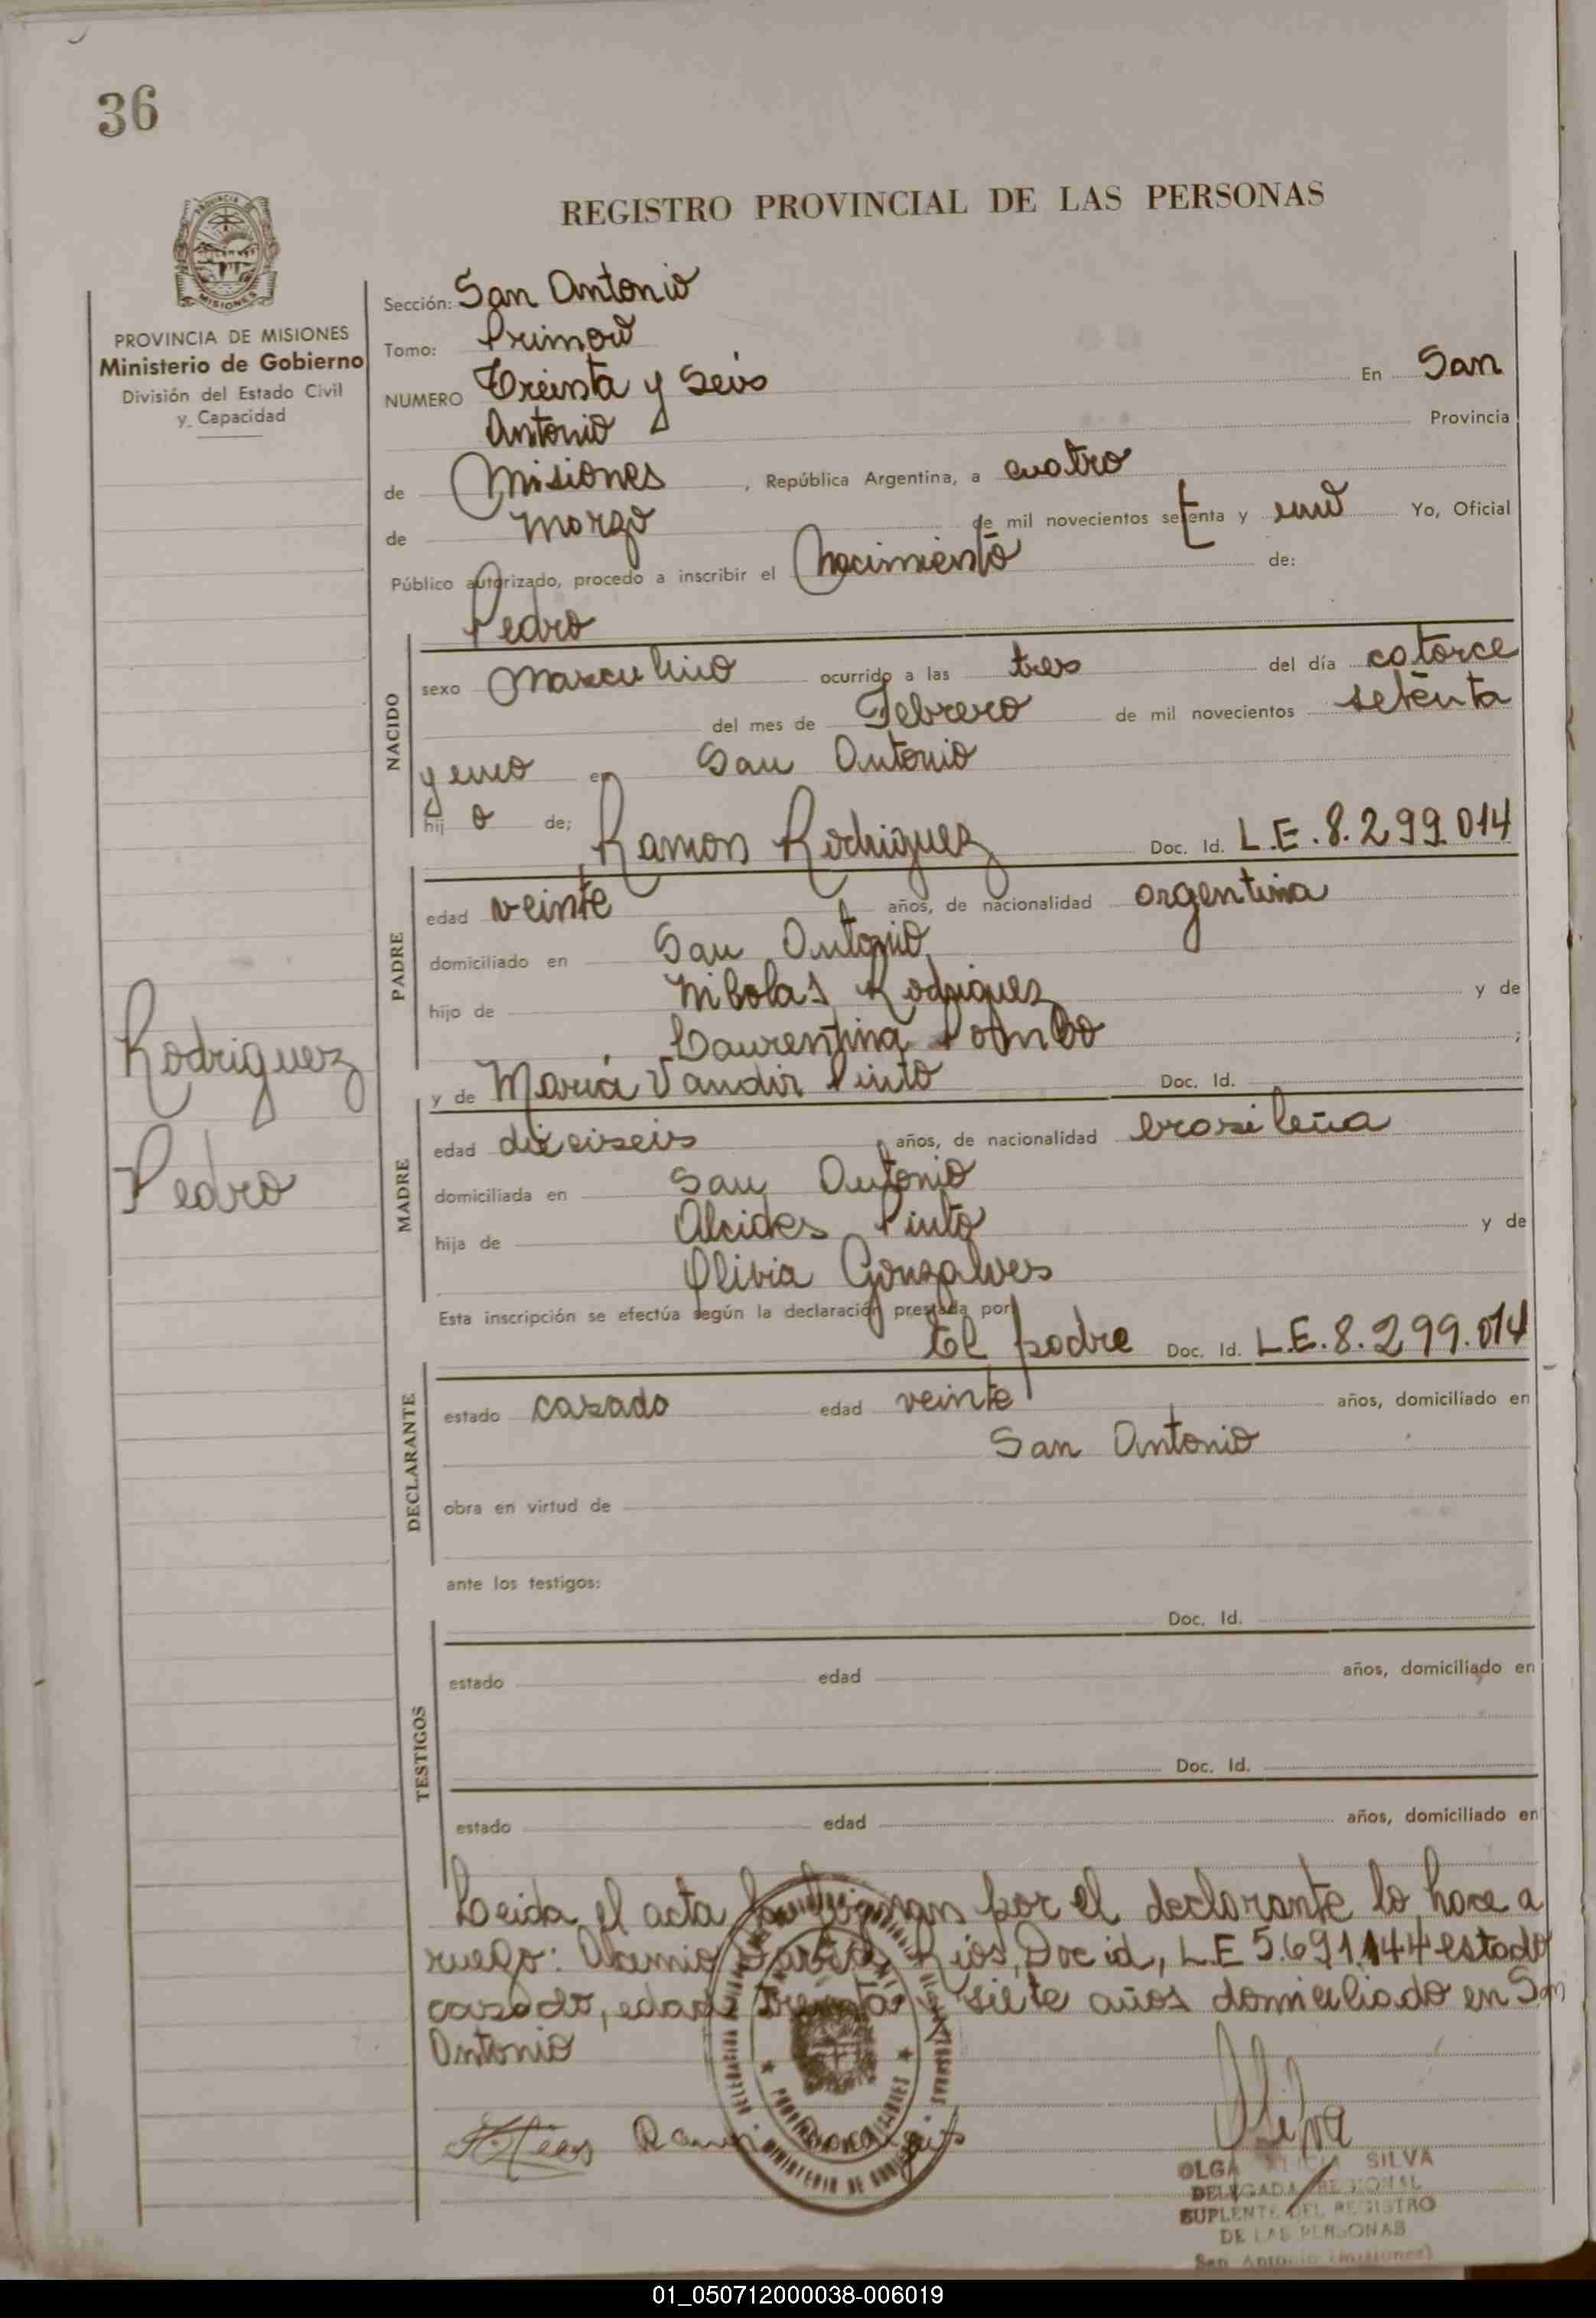 36
REGISTRO PROVINCIAL DE LAS PERSONAS
PROVINCIA DE MISIONES
Ministerio de Gobierno
División del Estado Civil
y. Capacidad
Sección: San Antonio
Tomo: Primero
NUMERO Treinta y Seis En San
Antonio Provincia
de Misiones, República Argentina, a cuatro
de Marzo de mil novecientos setenta y uno Yo, Oficial
Público autorizado, procedo a inscribir el Nacimiento de:
Pedro
NACIDO
sexo Masculino ocurrido a las tres del día catorce
del mes de Febrero de mil novecientos setenta
y uno en San Antonio
hij o de; Ramon Rodriguez Doc. Id. L.E. 8.299.014
PADRE
edad veinte años, de nacionalidad argentina
domiciliado en San Antonio
hijo de Nicolas Rodriguez y de
Laurentina Pombo ;
y de Maria Vandir Pinto Doc. Id.
MADRE
edad dieciseis años, de nacionalidad brasileña
domiciliada en San Antonio
hija de Alcides Pinto y de
Olivia Gonzalves
Rodriguez
Pedro
Esta inscripción se efectúa según la declaración prestada por
El padre Doc. Id. L.E. 8.299.014
DECLARANTE
estado casado edad veinte años, domiciliado en
San Antonio
obra en virtud de
ante los testigos:
Doc. Id.
TESTIGOS
estado edad años, domiciliado en
Doc. Id.
estado edad años, domiciliado en
Leida el acta por el declarante lo hace a
ruego: Rios, Doc id, L.E 5.691.144 estado
casado, edad treinta y siete años domiciliado en San
Antonio
Silva
OLGA ALICIA SILVA
DELEGADA REGIONAL
SUPLENTE DEL REGISTRO
DE LAS PERSONAS
San Antonio (Misiones)
01_050712000038-006019